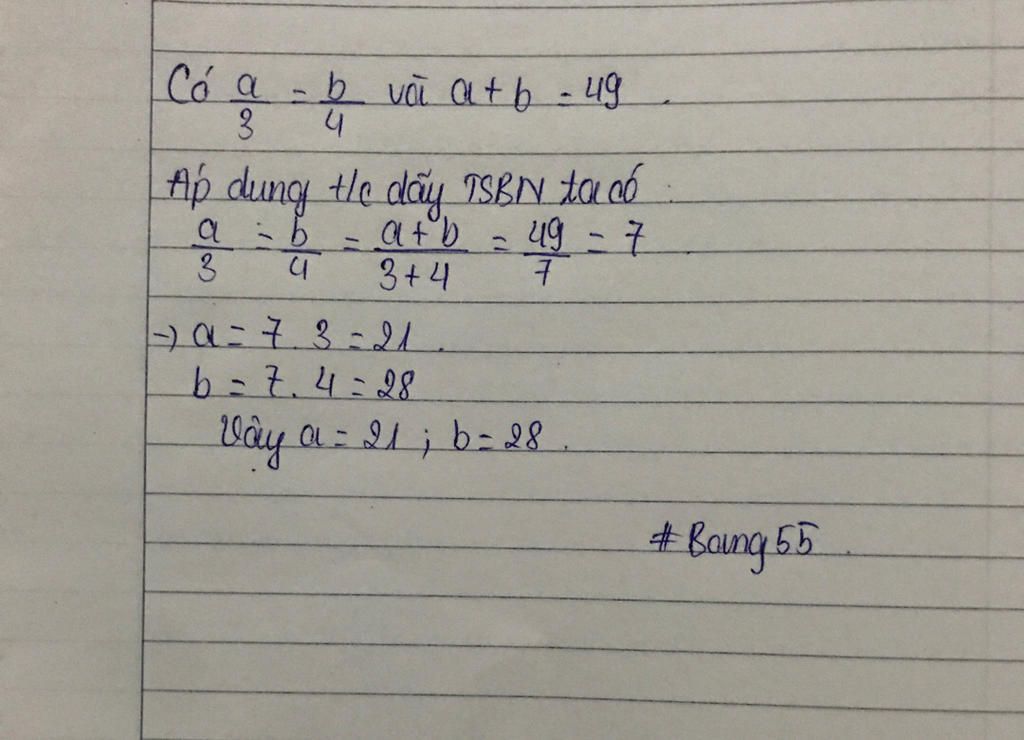 Có a/3 = b/4 và a + b = 49.
Áp dụng t/c dãy TSBN ta có
a/3 = b/4 = a + b/3 + 4 = 49/7 = 7
→ a = 7 . 3 = 21.
b = 7 . 4 = 28
Vậy a = 21 ; b = 28.
# Bang55